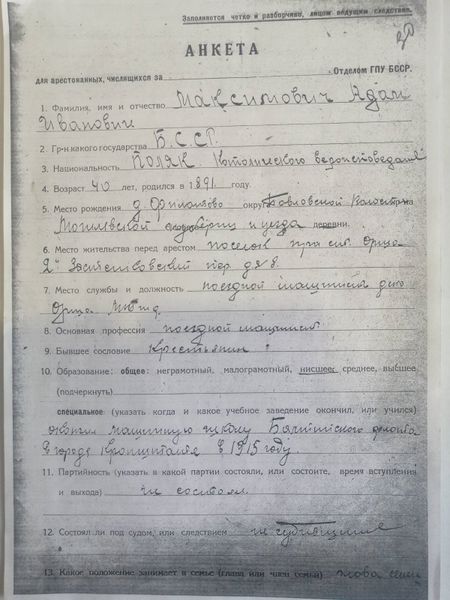 Заполняется четко и разборчиво, лицом ведущим следствие.
АНКЕТА
для арестованных, числящихся за Отделом ГПУ БССР.
1. Фамилия, имя и отчество Максимович Адам
Иванович
2. Гр-н какого государства Б.С.С.Р.
3. Национальность Поляк. Католического вероисповедания
4. Возраст 40 лет, родился в 1891 году.
5. Место рождения д. округ Павловской Волости
Могилевской губернии и уезда деревни.
6. Место жительства перед арестом поселок при ст. Орша
2й пер. д. № 8.
7. Место службы и должность поездной машинист депо
Орша
8. Основная профессия поездной машинист
9. Бывшее сословие Крестьянин
10. Образование: общее: неграмотный, малограмотный, низшее, среднее, высшее
(подчеркнуть)
специальное (указать когда и какое учебное заведение окончил, или учился)
окончил машинную школу Балтийского флота
в городе Кронштадте в 1915 году.
11. Партийность (указать в какой партии состояли, или состоите, время вступления
и выхода) не состоял.
12. Состоял ли под судом, или следствием не судившийся
13. Какое положение занимает в семье (глава или член семьи) глава семьи